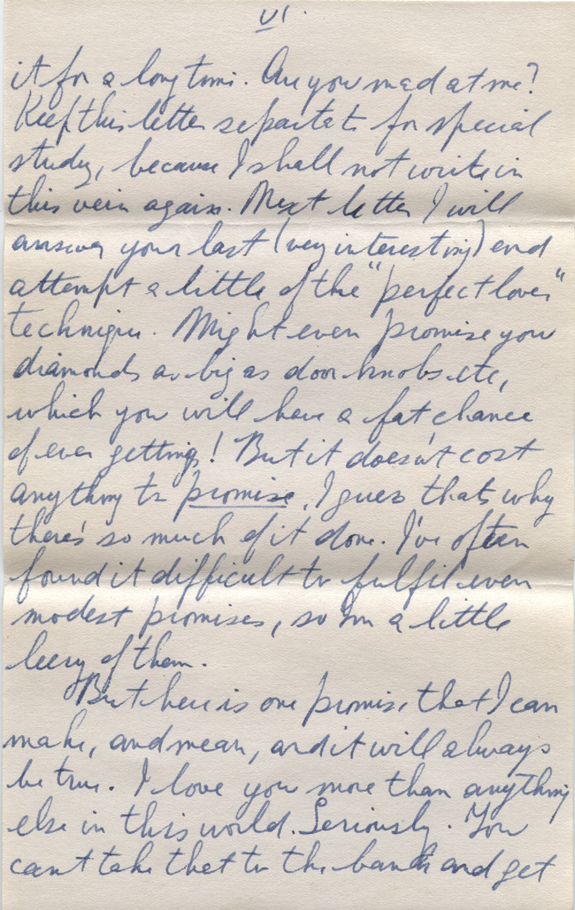 VI.
it for a long time. Are you mad at me?
Keep this letter separate for special
study, because I shall not write in
this vein again. Next letter I will
answer your last (very interesting) and
attempt a little of the "perfect lover"
technique. Might even promise you
diamonds as big as door knobs etc,
which you will have a fat chance
of ever getting! But it doesn't cost
anything to promise, I guess thats why
there's so much of it done. I've often
found it difficult to fulfil even
modest promises, so I'm a little
leery of them.
But here is one promise that I can
make, and mean, and it will always
be true. I love you more than anything
else in this world. Seriously. You
can't take that to the bank and get